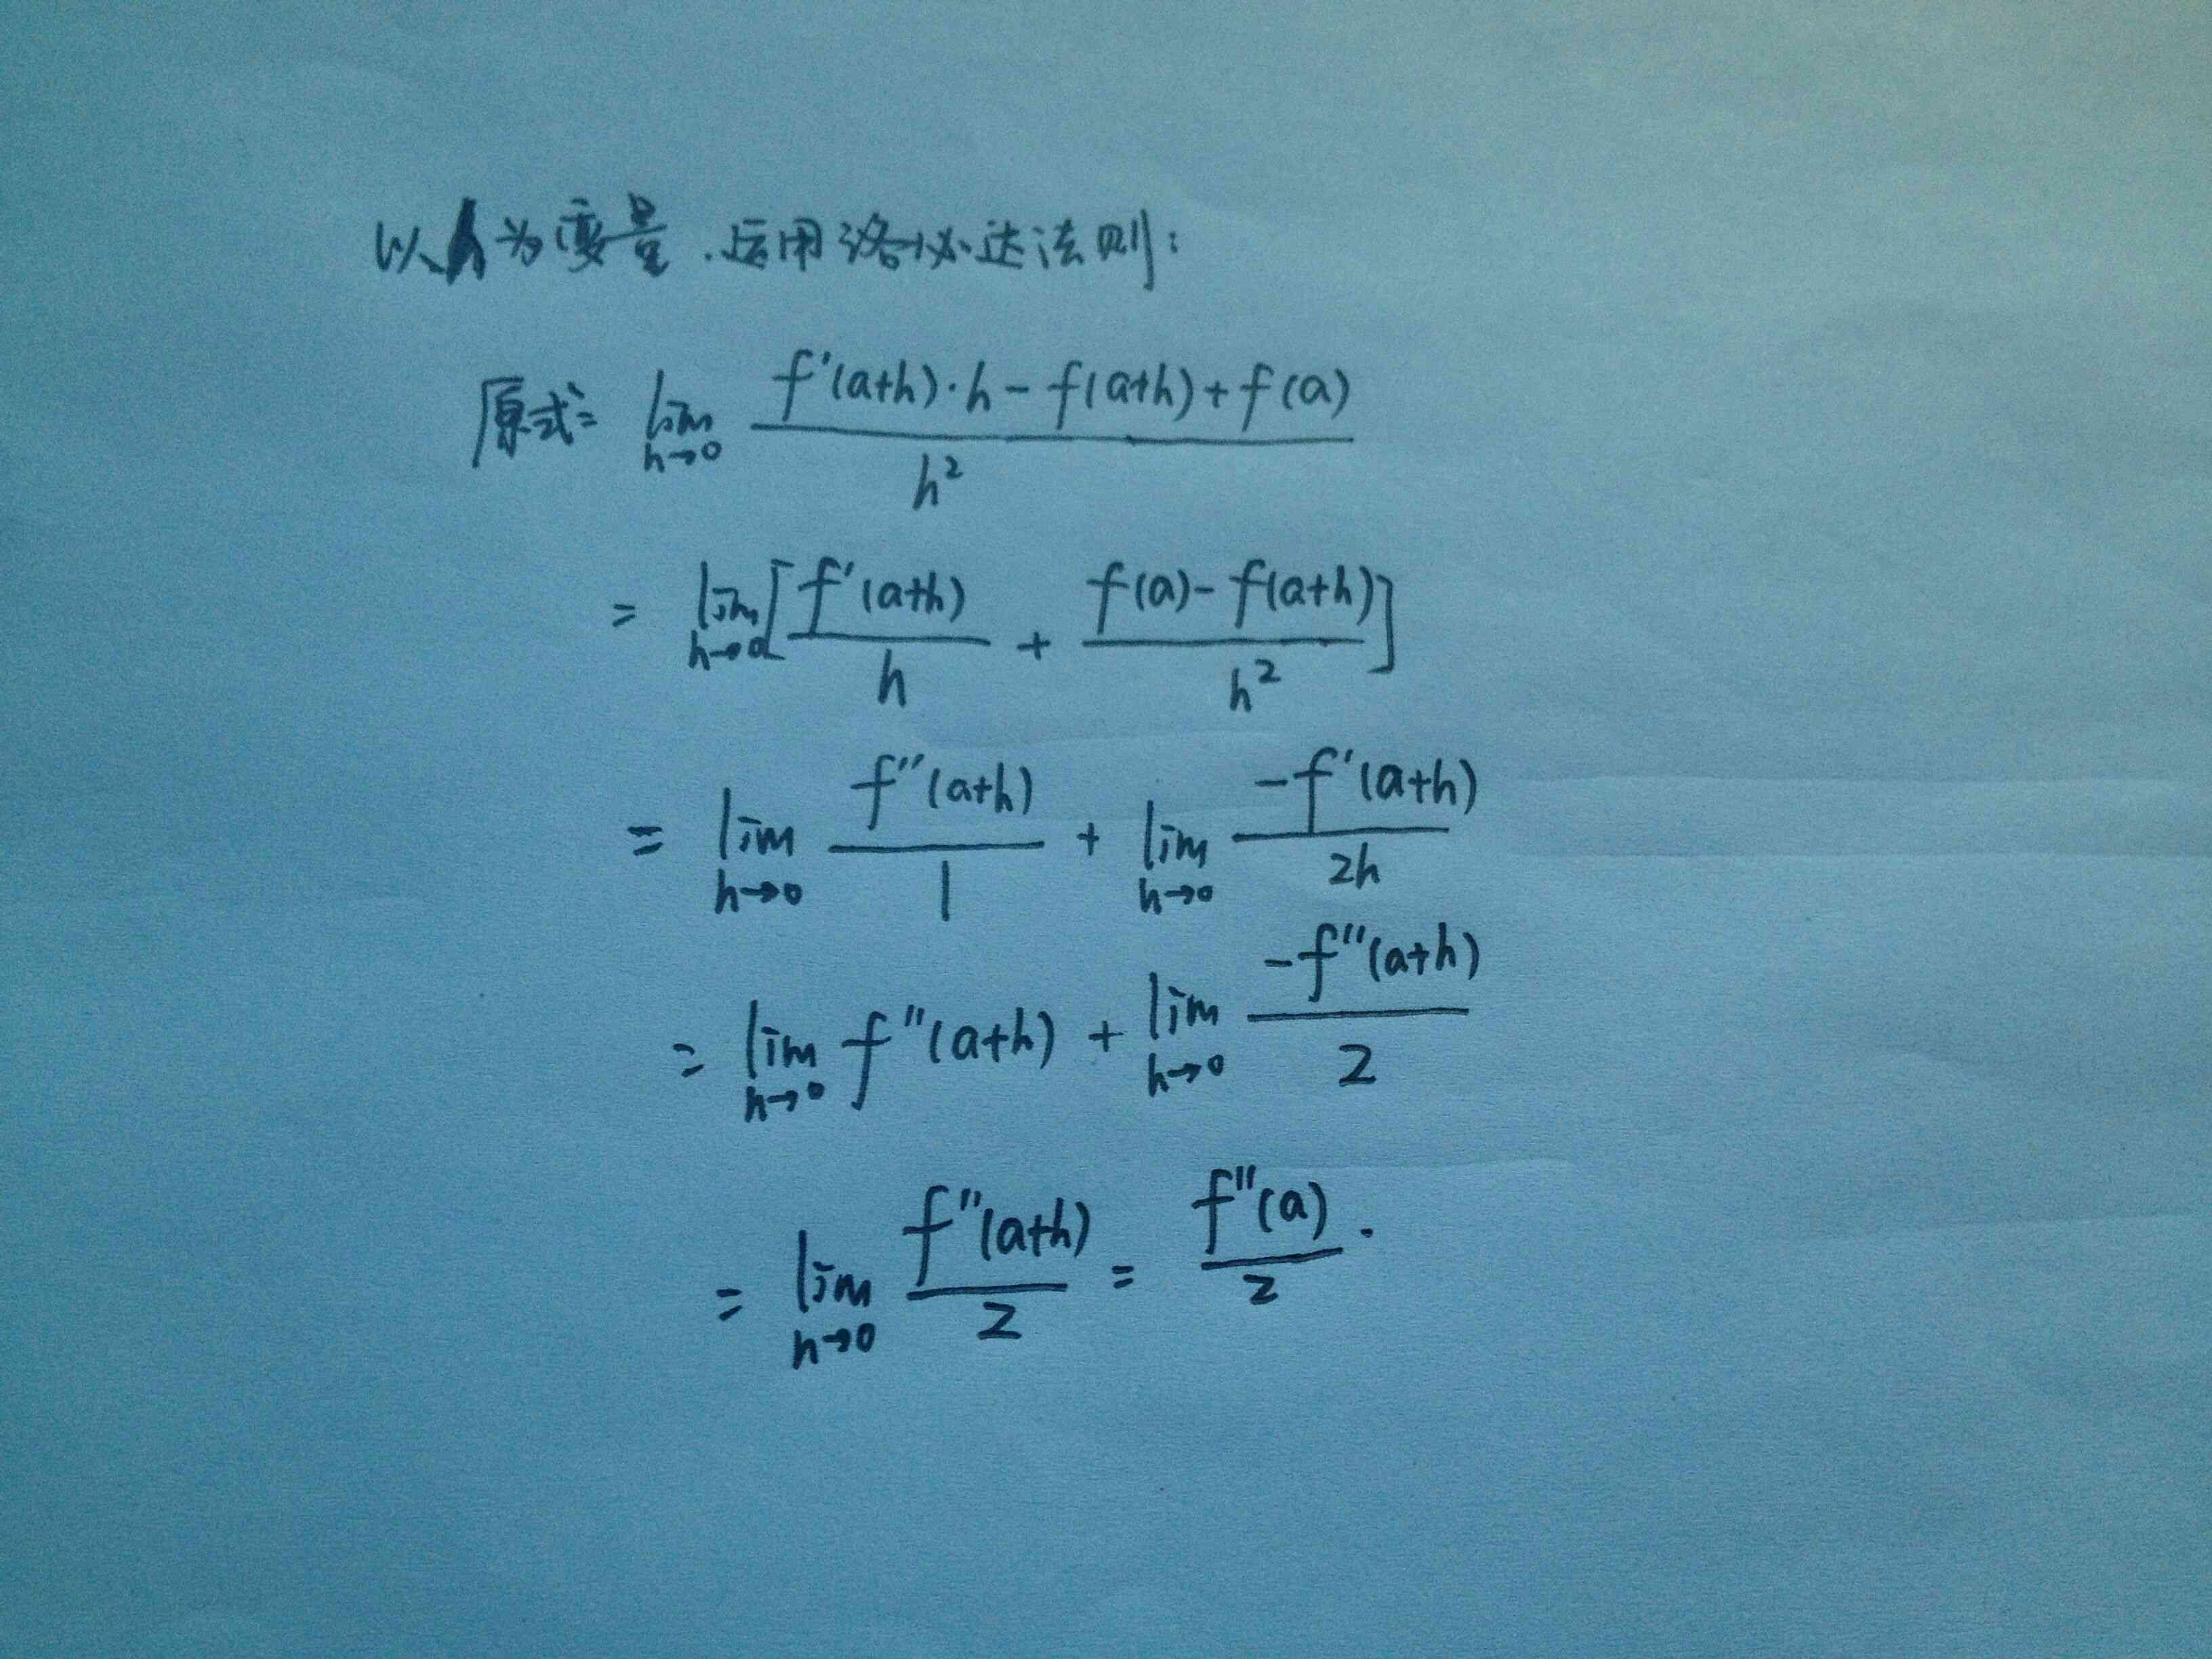 以h为变量.运用洛必达法则:
原式= lim h→0 f'(a+h)·h-f(a+h)+f(a) / h²
= lim h→0 [f'(a+h) / h + f(a)-f(a+h) / h²]
= lim h→0 f''(a+h) / 1 + lim h→0 -f'(a+h) / 2h
= lim h→0 f''(a+h) + lim h→0 -f''(a+h) / 2
= lim h→0 f''(a+h) / 2 = f''(a) / 2 .